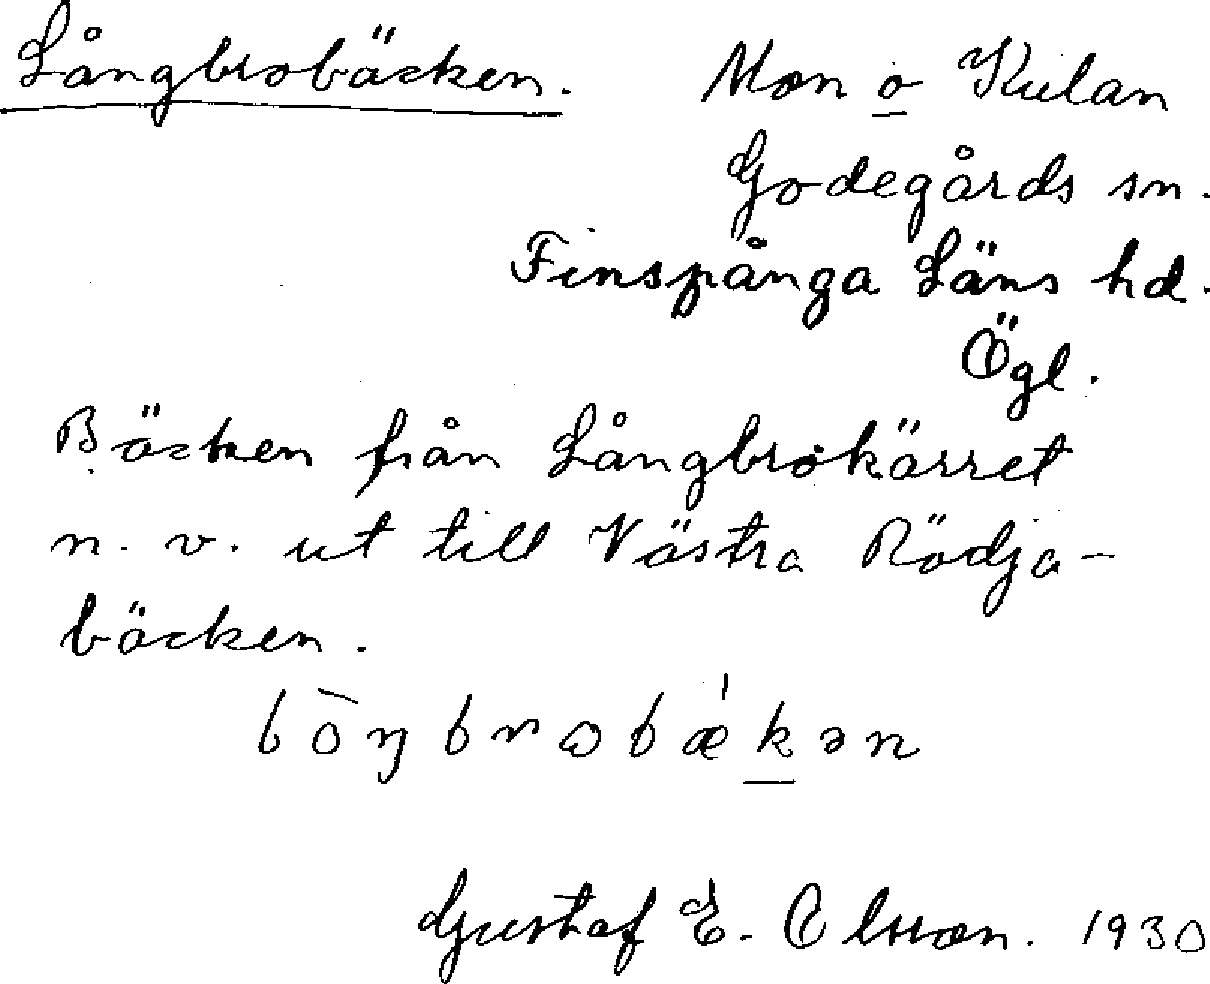 Långbrobäcken. Mon o Kulan
Godegårds sn.
Finspånga Läns hd.
Ögl.
Bäcken från Långbrokärret
n. v. ut till Västra Rödja-
bäcken.
Gustaf E. Olsson. 1930